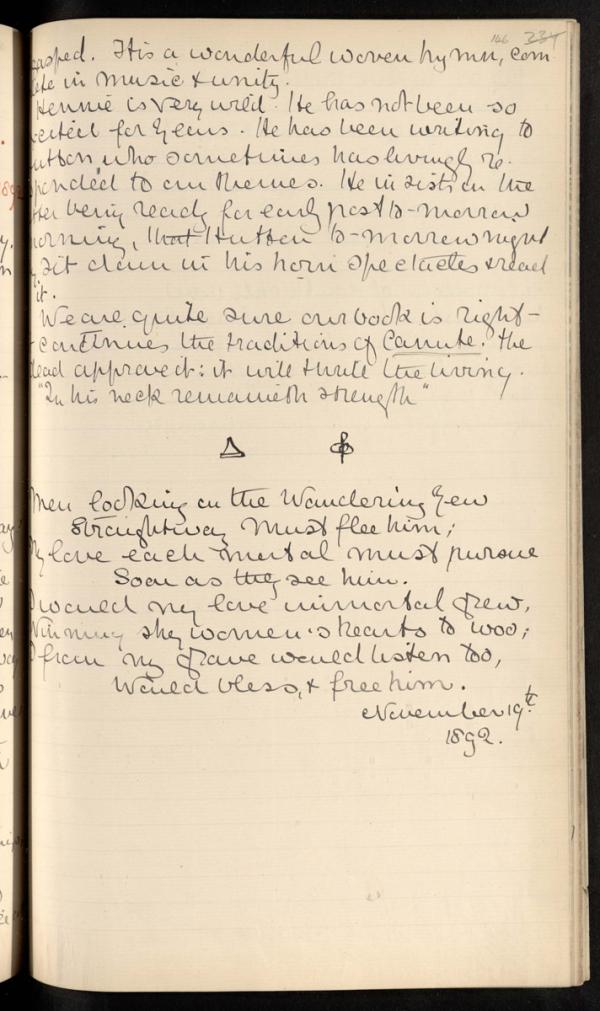 146 234
gasped. It is a wonderful woven hymn, com
lete in music & unity.
Hennie is very wild. He has not been so
excited for years. He has been writing to
Hutton, who sometimes has lovingly re-
sponded to our themes. He insists on the
letter being ready for early post to-morrow
morning, that Hutton to-morrow night
sit down in his horn spectacles & read
it.
We are quite sure our book is right –
continues the traditions of Canute. The
dead approve it: it will thrill the living.
"In his neck remaineth strength"
Men looking on the Wandering Jew
Straightway must flee him;
My love each mortal must pursue
Soon as they see him.
I would my love immortal grew,
Winning shy women's hearts to woo;
I from my grave would listen too,
Would bless, & free him.
November 19th
1892.